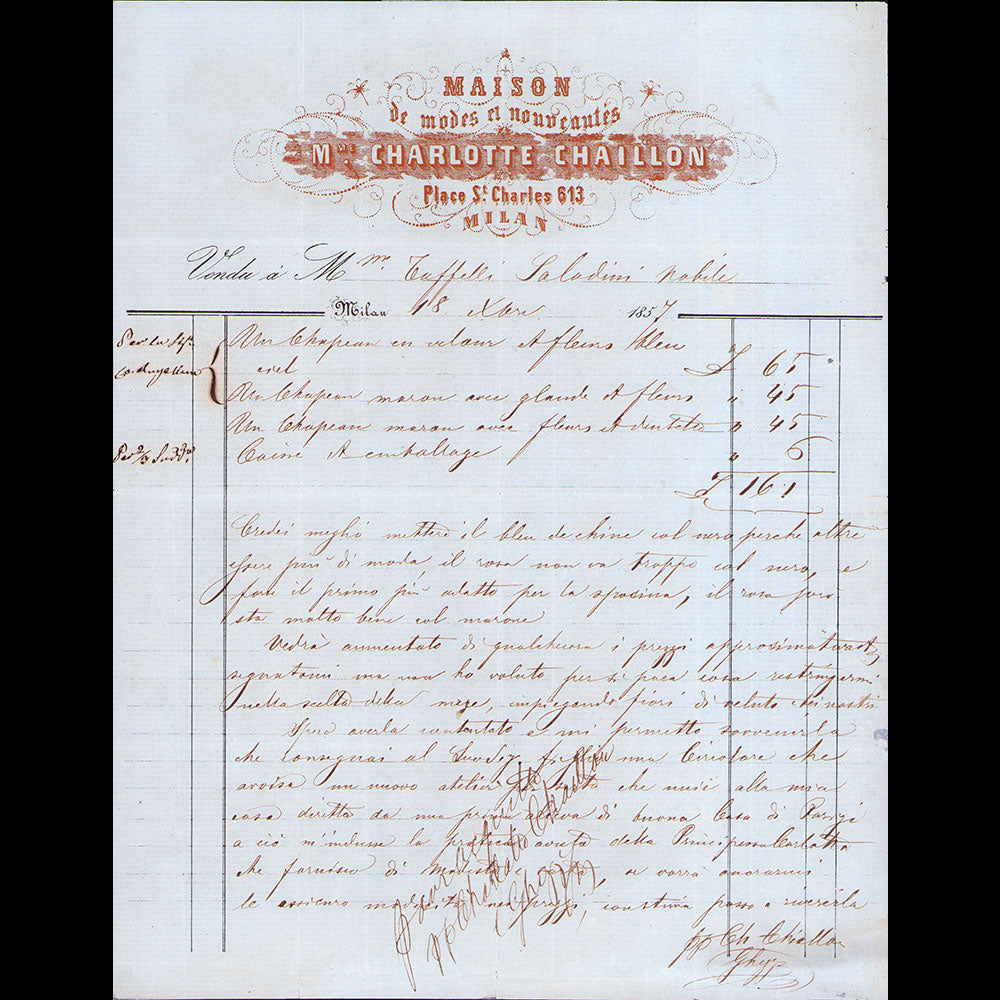 MAISON
de modes et nouveautés
Mme CHARLOTTE CHAILLON
Place St. Charles 613
MILAN
Vendu à Mme Taffelli Saladini nobile
Milan 18 Xbre 1857
Per la
Un Chapeau en velour et fleurs bleu
ciel £ 65
Un Chapeau maron avec glands et fleurs " 45
Un Chapeau maron avec fleurs et dentels " 45
Caine et emballage " 6
£ 161
Credei meglio mettere il bleu de chine col nero perche oltre
essere piu di moda il rosa non va troppo col nero, e
fare il primo più adatto per la sposina, il rosa poi
sta molto bene col marone
Vedrà aumentato di qualchecosa i prezzi
segnatomi ma non ho voluto per si poca cosa restringermi
nella scelta della merce, impiegando fiori di veluto
Spero averla contentata e mi permetto sovvenirla
che consegnai al una Circolare che
avvisa un nuovo atelier che unii alla mia
casa diretta da una prima di buona Casa di Parigi
a ciò m'indusse la avuta della Principessa Carlotta
che fornisco di se vorrà onorarmi
le assicuro nei prezzi, con stima passo a riverirla
pp Ch Chaillon
Ghezzi
Pour acquit
pp Charlotte Chaillon
Ghezzi